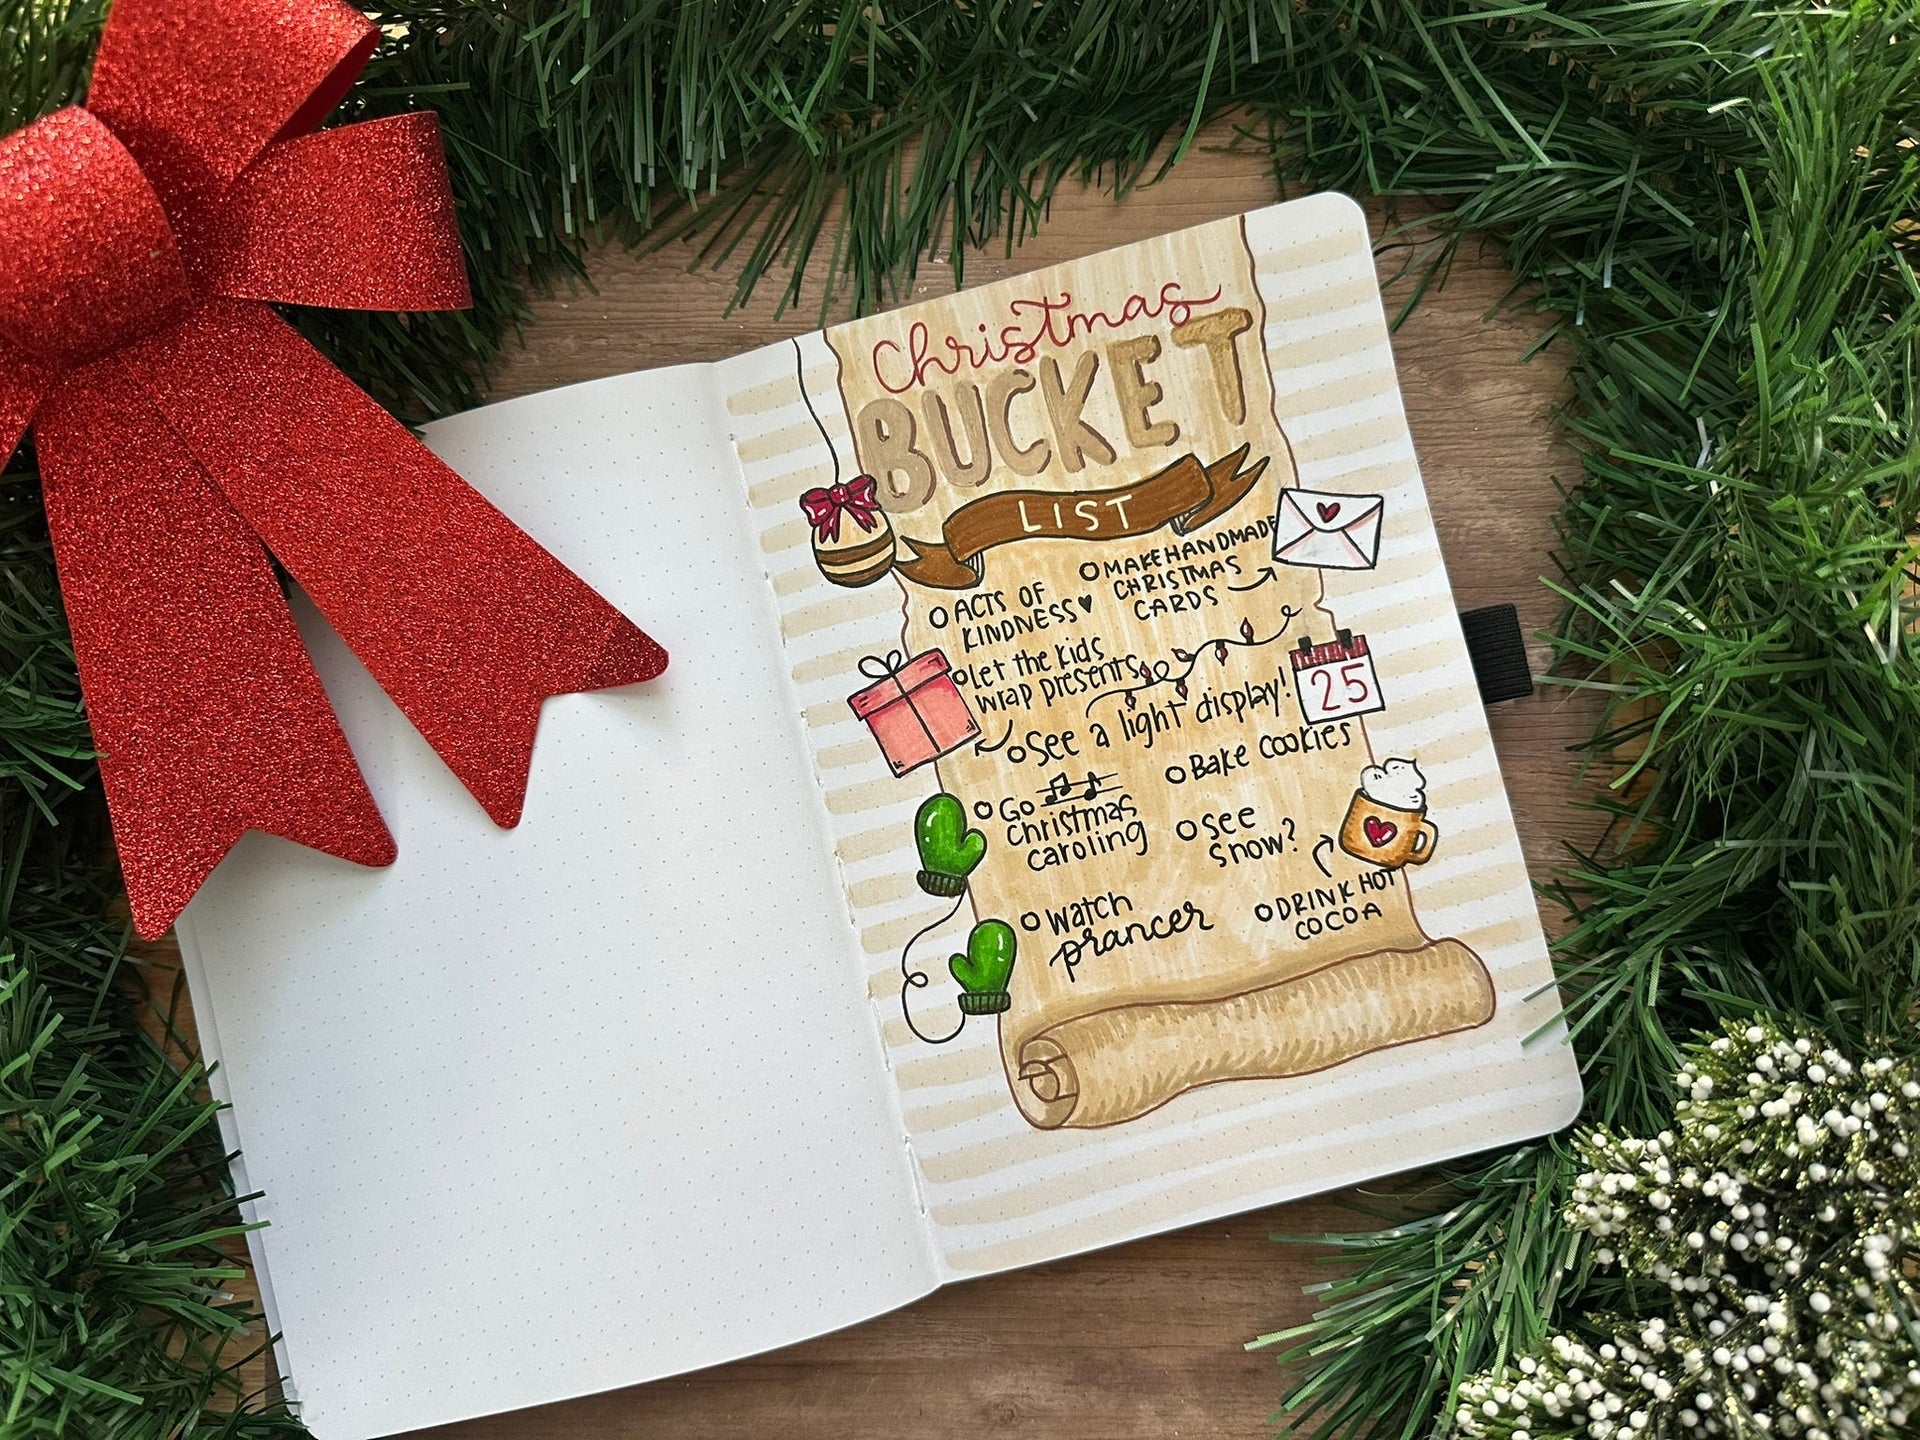 Christmas
BUCKET
LIST
ACTS OF
KINDNESS
MAKE HANDMADE
CHRISTMAS
CARDS
Let the kids
wrap presents
See a light display!
25
Bake cookies
Go
Christmas
caroling
See
Snow?
Watch
prancer
DRINK HOT
COCOA